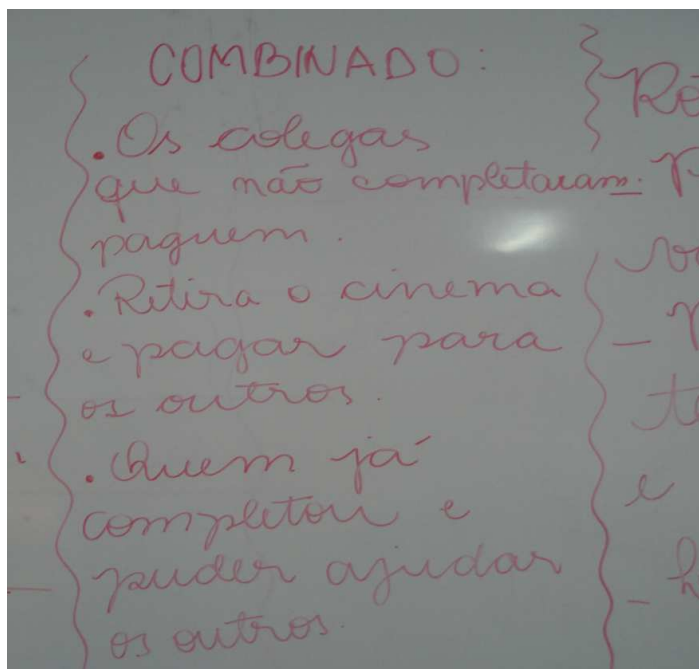 COMBINADO:
. Os colegas
que não completaram.
paguem.
. Retira o cinema
e pagar para
os outros.
. Quem já
completou e
puder ajudar
os outros.
e